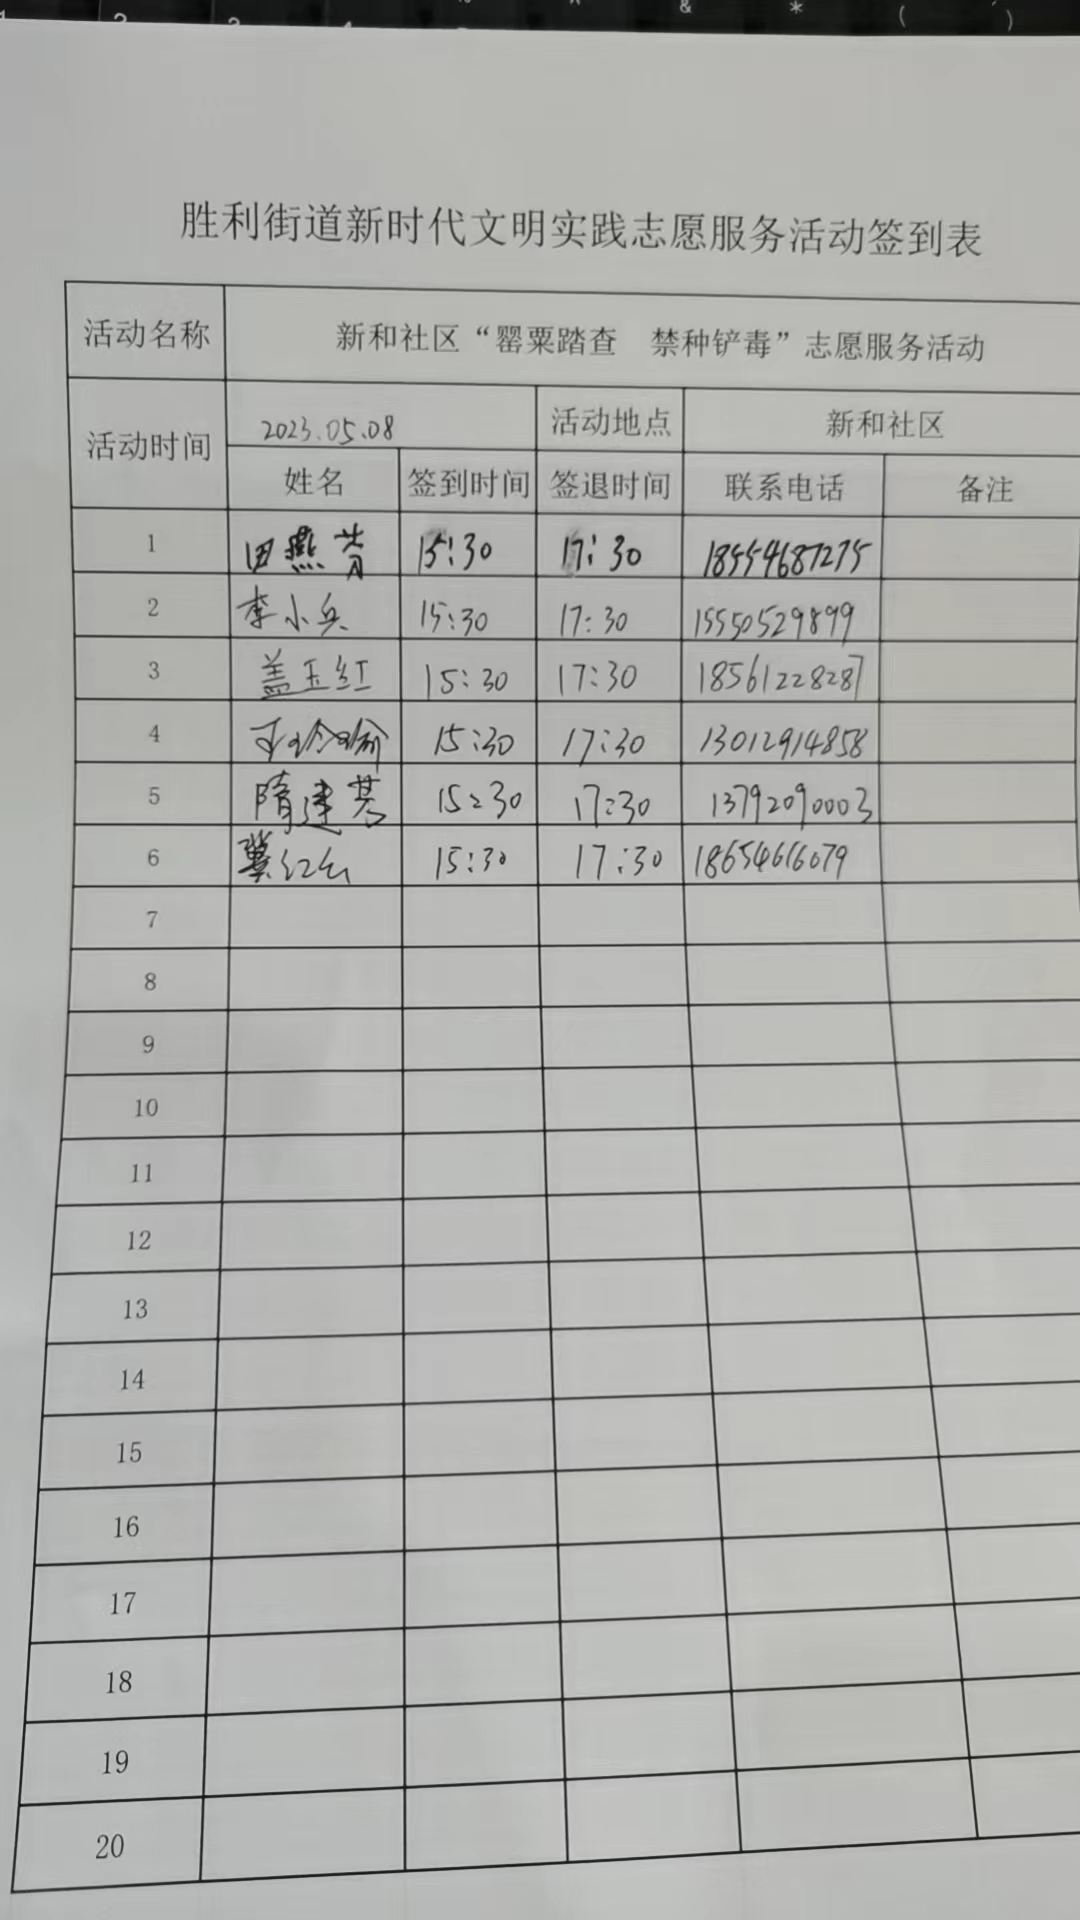 胜利街道新时代文明实践志愿服务活动签到表
活动名称 新和社区“罂粟踏查 禁种铲毒”志愿服务活动
活动时间 2023.05.08 活动地点 新和社区
姓名 签到时间 签退时间 联系电话 备注
1 田燕芳 15:30 17:30 18554687275
2 李小兵 15:30 17:30 15550529899
3 盖玉红 15:30 17:30 18561228287
4 15:30 17:30 13012914858
5 隋建 15:30 17:30 13792090003
6 冀红 15:30 17:30 18654616079
7
8
9
10
11
12
13
14
15
16
17
18
19
20